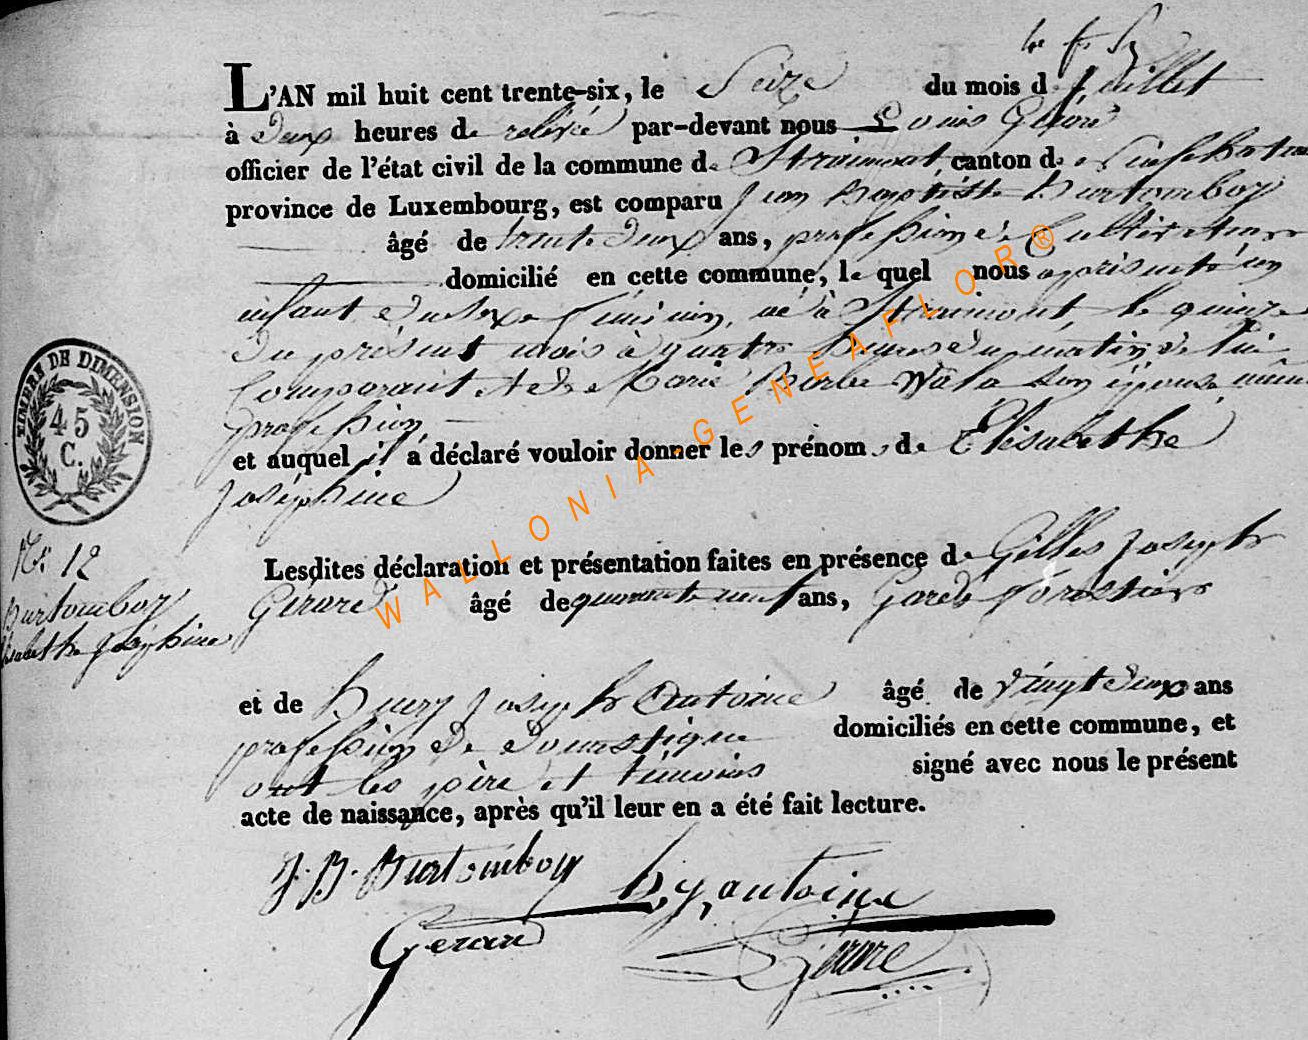 L'AN mil huit cent trente-six, le Seize du mois de Juillet
à deux heures de relévée par-devant nous Louis Gérard
officier de l'état civil de la commune de Straimont canton de Neufchateau
province de Luxembourg, est comparu Jean Baptiste Burtomboy
âgé de trente deux ans, profession de Cultivateur
domicilié en cette commune, le quel nous a présenté un
enfant du sexe féminin, né à Straimont le quinze
du présent mois à quatre heures du matin de lui
Comparant et de Marie Barbe son épouse même
profession
et auquel il a déclaré vouloir donner les prénoms de Elisabethe
Joséphine
TIMBRE DE DIMENSION
45
C.
N° 12
Burtomboy
Elisabethe Joséphine
Lesdites déclaration et présentation faites en présence de Gilles Joseph
Gérard âgé de quarante neuf ans, Garde forestier
et de Henry Joseph Antoine âgé de vingt deux ans
profession de domestique domiciliés en cette commune, et
ont les père et témoins signé avec nous le présent
acte de naissance, après qu'il leur en a été fait lecture.
J. B. Burtomboy
h, j, antoine
Gerard
Gérard
WALLONIA-GENEAFLOR®